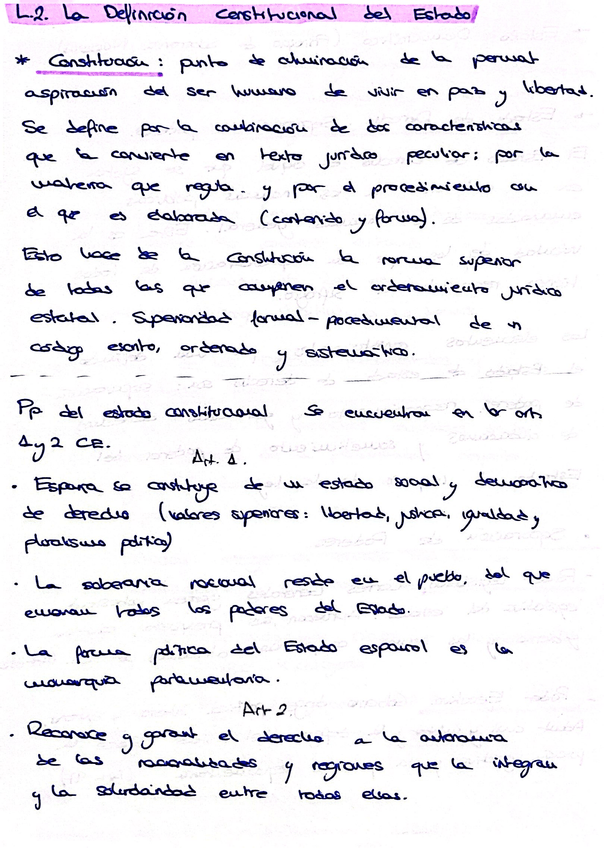 L.2. La Definición Constitucional del Estado
* Constitución: punto de culminación de la permat
aspiración del ser humano de vivir en paz y libertad.
Se define por la combinación de dos características
que la convierte en texto jurídico peculiar: por la
materia que regula. y por el procedimiento con
el que es elaborada (contenido y forma).
Esto hace de la Constitución la norma superior
de todas las que componen el ordenamiento jurídico
estatal. Superioridad formal-procedimental de un
código escrito, ordenado y sistemático.
Pp del estado constitucional se encuentran en los arts
1 y 2 CE.
Art. 1.
· España se constituye de un estado social y democrático
de derecho (valores superiores: libertad, justicia, igualdad y
pluralismo político)
· La soberanía nacional reside en el pueblo, del que
emanan todos los poderes del Estado.
· La forma política del Estado español es la
monarquía parlamentaria.
Art 2.
· Reconoce y garant el derecho a la autonomía
de las nacionalidades y regiones que la integran
y la solidaridad entre todas ellas.